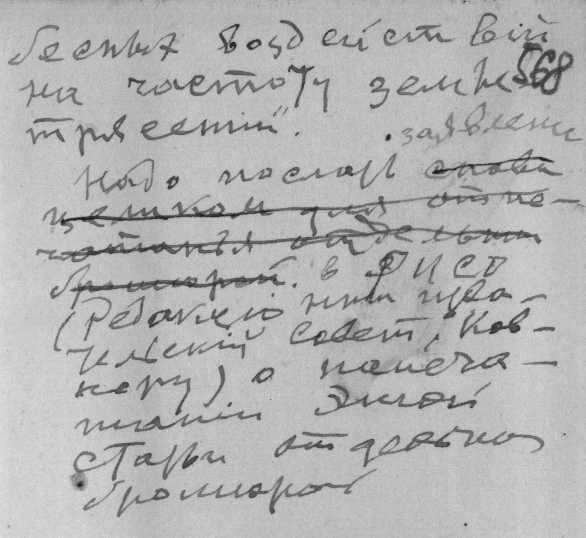 бесных воздействий
на частоту земле 568
трясений".
заявление
Надо послать снова
целиком для отпе-
чатанья отдельной
брошюрой. в РИСО
(Редакціонно изда-
тельскій совет,
) о напеча-
тании этой
статьи отдельной
брошюрой